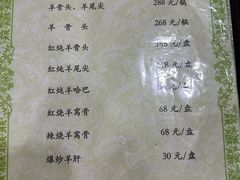 羊骨头、羊尾尖 288 元/锅
羊骨头 268 元/锅
红炖羊骨头 元/盘
红炖羊尾尖 8 元/盘
红炖羊哈巴 元/盘
红烧羊窝骨 68 元/盘
辣烧羊窝骨 68 元/盘
爆炒羊肝 30 元/盘